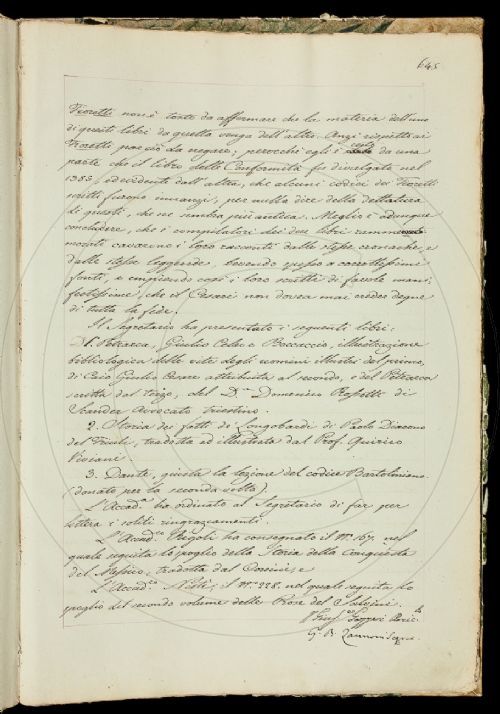 645
Fioretti non è tanto da affermare che la materia dell'uno
di questi libri da quella venga dell'altro. Anzi rispetto ai
Fioretti pur ciò da negare; perocchè egli è certo da una
parte che il libro delle Conformità fu divulgato nel
1385, ed evidente dall'altra, che alcuni codici dei Fioretti
scritti furono innanzi, per nulla dire della dettatura
di questi, che ne sembra più antica. Meglio è adunque
concludere, che i compilatori dei due libri
mente cavarono i loro racconti dalle stesse cronache, e
dalle stesse leggende bevendo spesso a corrottissimi
fonti, e empiendo così i loro scritti di favole mani-
festissime, che il Cesari non dovea mai creder degne
di tutta la fede.
Il Segretario ha presentato i seguenti libri:
1. Petrarca, Giulio Celso e Boccaccio, illustrazione
bibliologica delle vite degli uomini illustri del primo,
di Caio Giulio Cesare attribuita al secondo, e del Petrarca
scritta dal terzo, del D.r Domenico Rossetti di
Scander Avvocato triestino.
2. Storia dei fatti di Longobardi di Paolo Diacono
del Friuli, tradotta ed illustrata dal Prof. Quirico
Viviani.
3. Dante, giusta la lezione del codice Bartoliniano.
(donato per la seconda volta).
L'Accad.a ha ordinato al Segretario di far per
lettera i soliti ringraziamenti.
L'Accad.co Fiegoli ha consegnato il N.o 167, nel
quale seguita lo spoglio della Storia della Conquista
del Messico, tradotta dal Corsini; e
L'Accad.co Nesti, il N.o 228. nel quale seguita lo
spoglio del secondo volume delle Prose del Salvini.
G. B. Zannoni Segr.